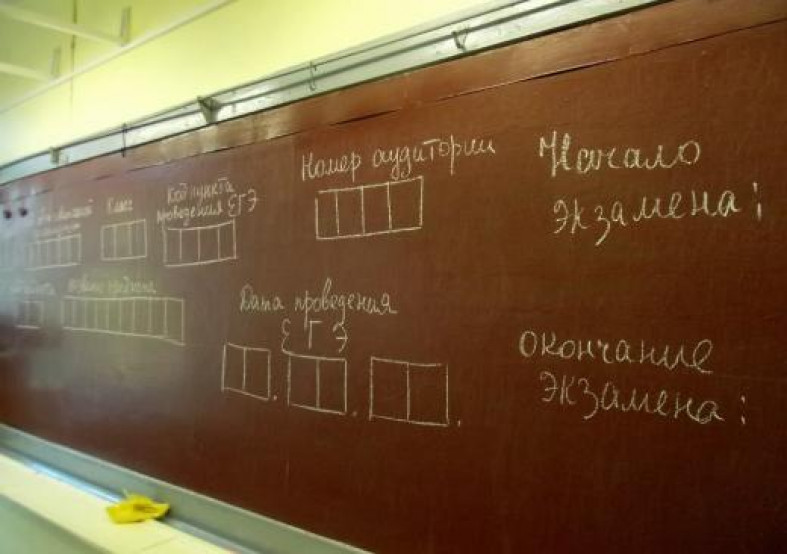 Класс
Код пункта
проведения ЕГЭ
Номер аудитории
Начало
экзамена:
Дата проведения
ЕГЭ
окончание
экзамена: